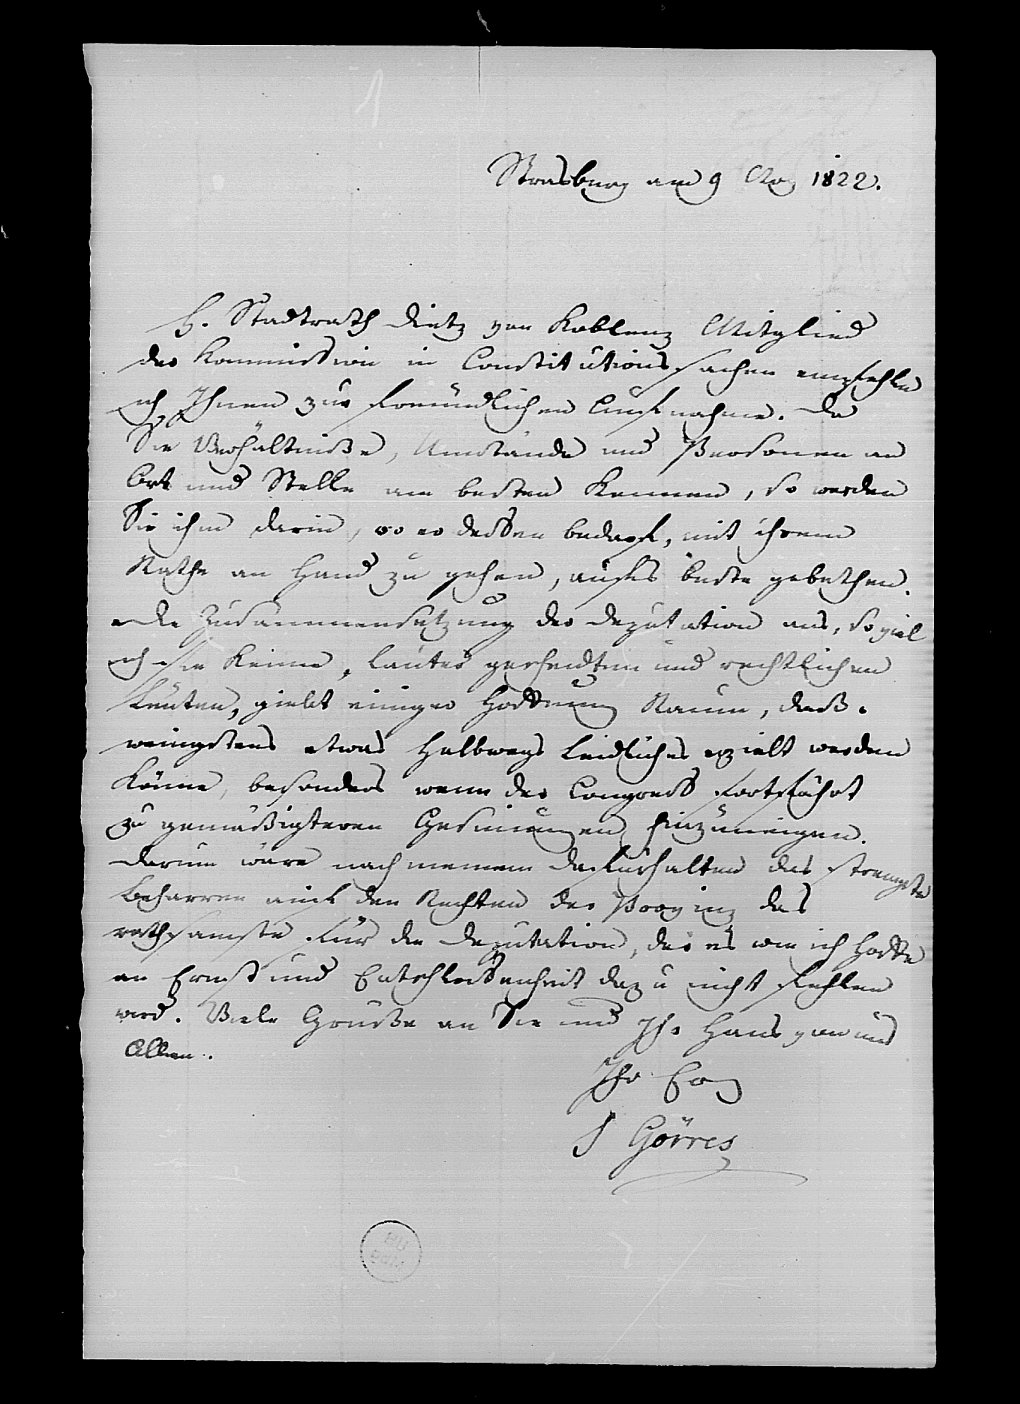 Strasburg am 9 Aug 1822.
H. Stadtrath Dietz von Koblenz Mitglied
der Kommission in Constitutionssachen empfehle
ich Ihnen zur freundlichen Aufnahme. Da
Sie Verhältniße, Umstände und Personen an
Ort und Stelle am besten kennen, so werden
Sie ihm darin, wo er dessen bedarf, mit ihrem
Rathe an Hand zu gehen, aufs beste gebethen.
Die Zusammensetzung der Deputation aus, so viel
ich sie kenne, lauter gescheidten und rechtlichen
Leuten, giebt einiger Hoffnung Raum, daß
wenigstens etwas halbwegs leidliches erzielt werden
könne, besonders wenn der Congress fortfährt
zu gemäßigteren Gesinnungen hinzuneigen.
Darum wäre nach meinem dafürhalten das strengste
Beharren auf den Rechten der Provinz das
rathsamste für die Deputation, der es wie ich hoffe
an Ernst und Entschlossenheit dazu nicht fehlen
wird. Viele Grüße an Sie und Ihr Haus von uns
Allen.
Ihr
J Görres